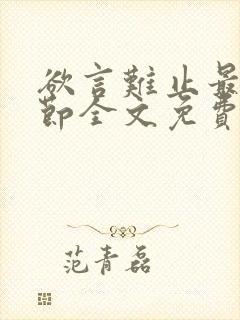 欲言難止最
節全文免費
范青磊